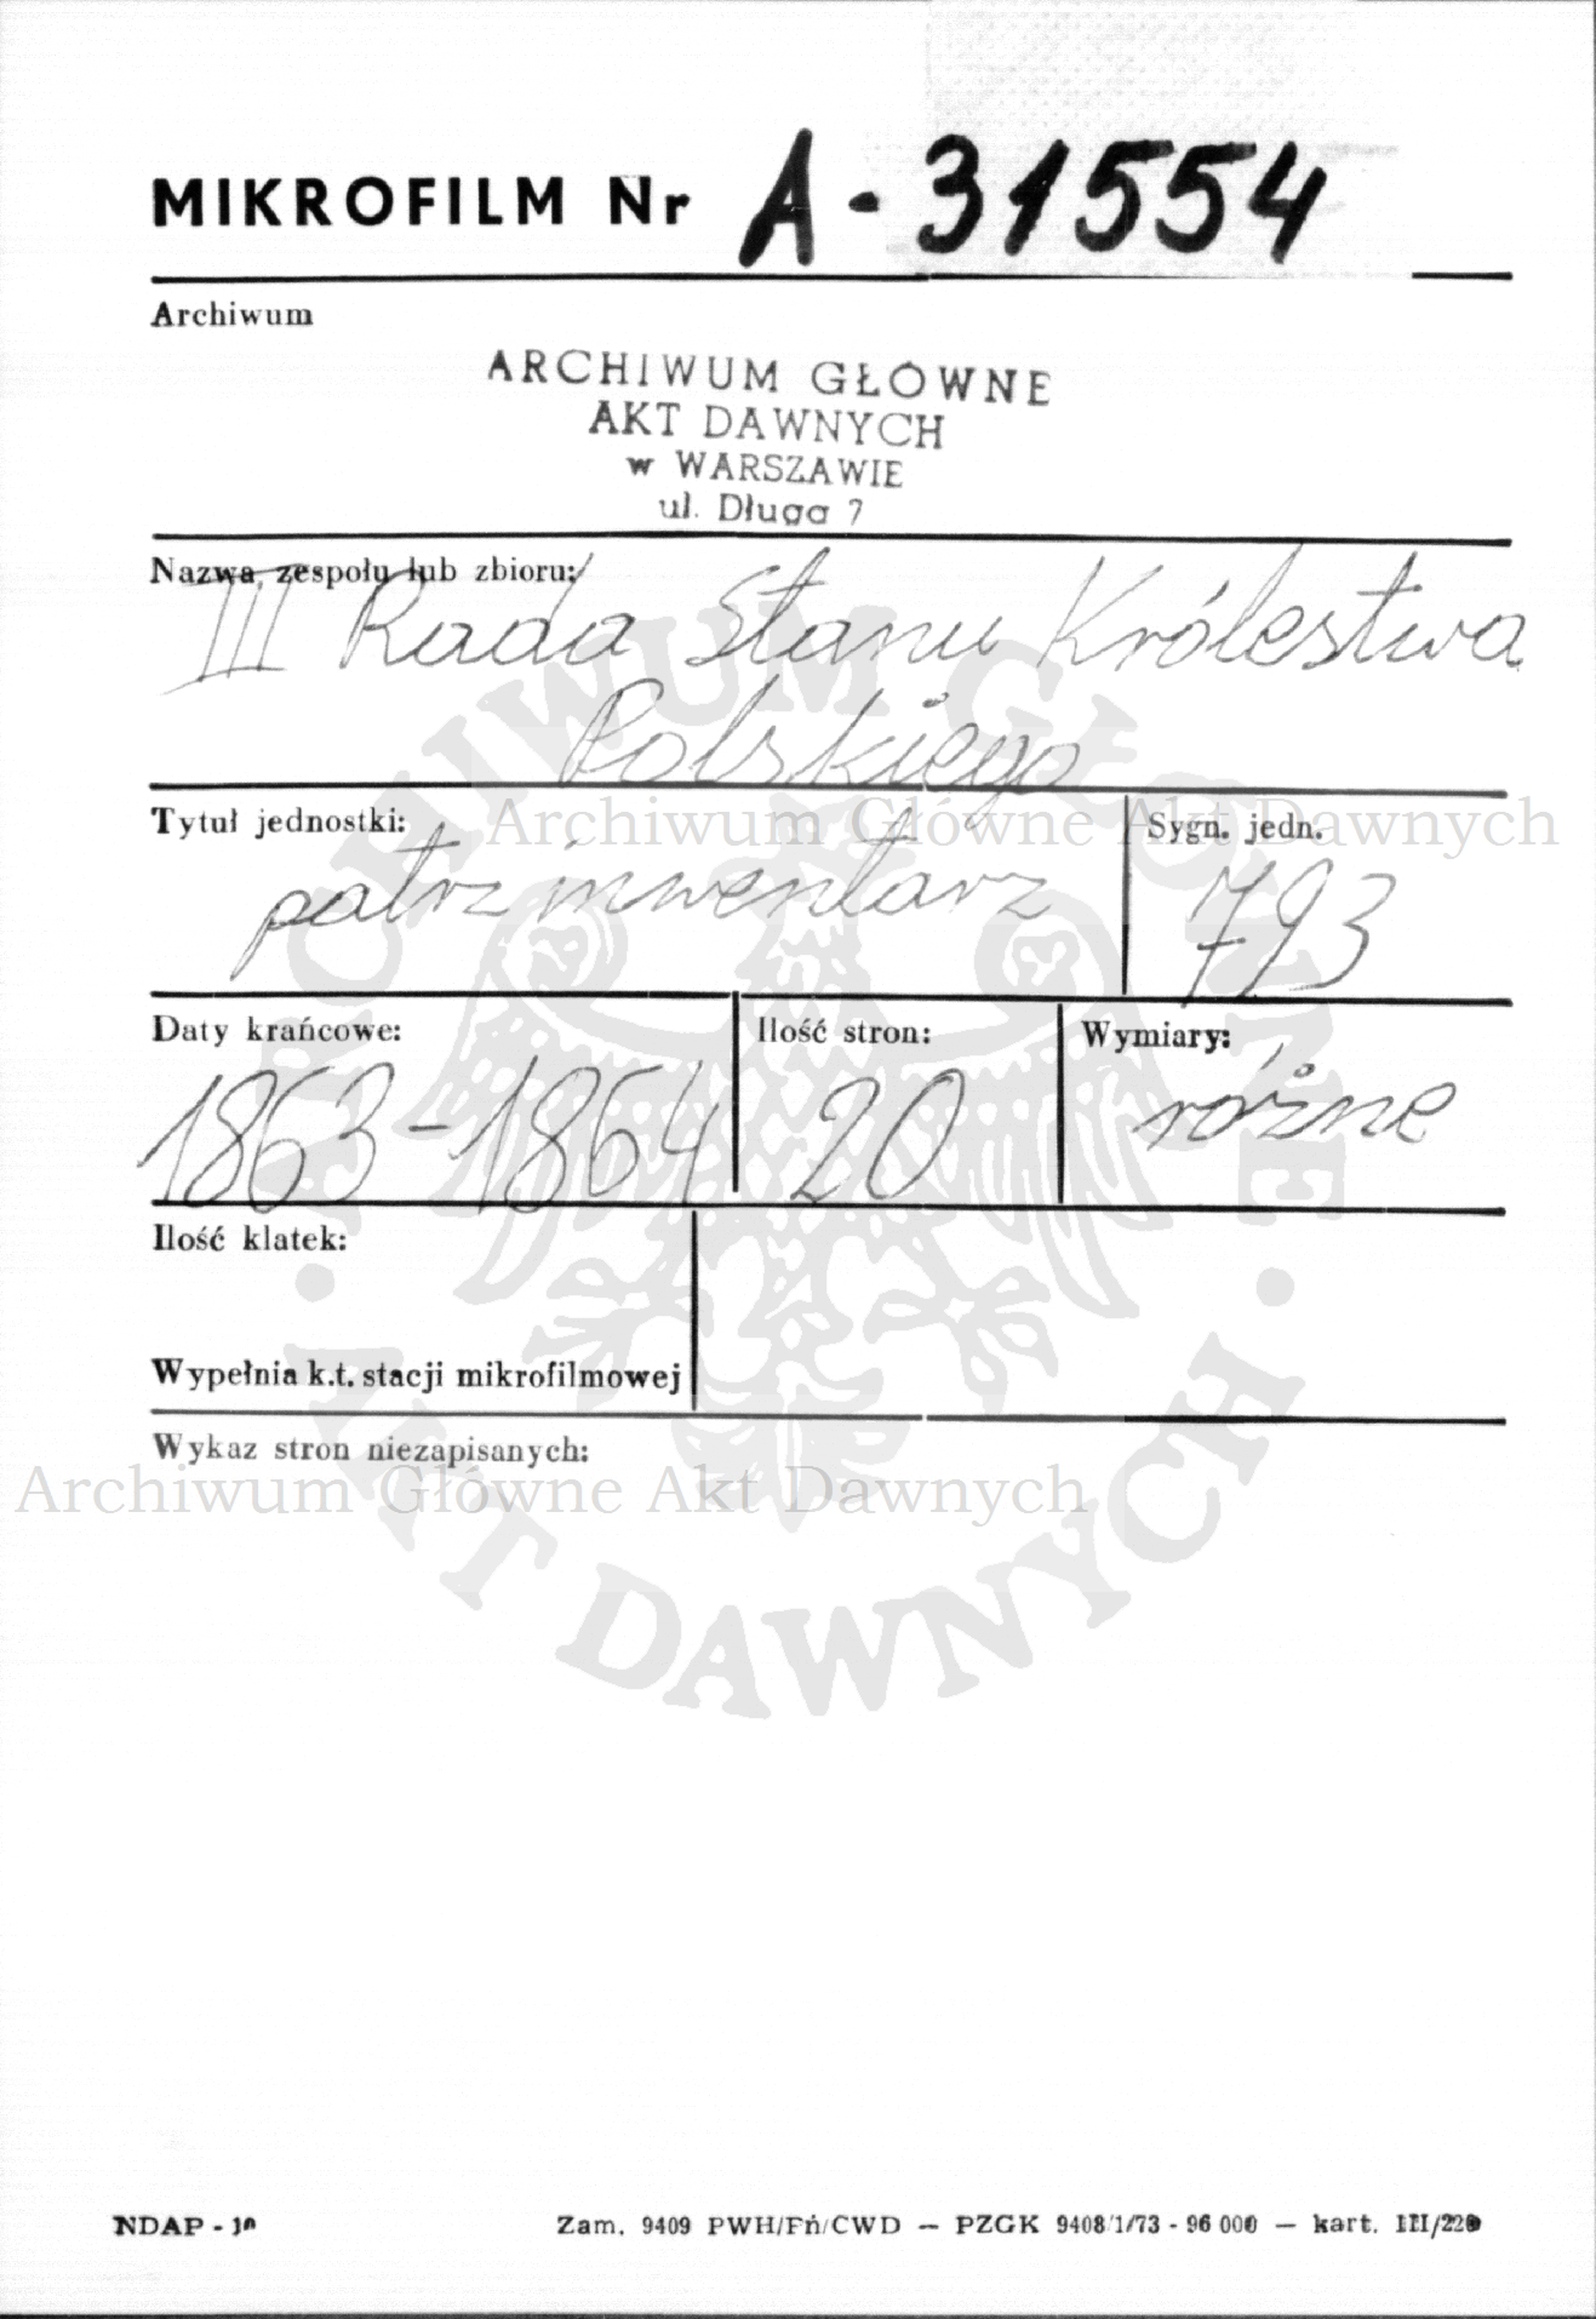 MIKROFILM Nr A-31554
Archiwum
ARCHIWUM GŁÓWNE
AKT DAWNYCH
w WARSZAWIE
ul. Długa 7
Nazwa zespołu lub zbioru:
III Rada Stanu Królestwa
Polskiego
Tytuł jednostki:
patrz inwentarz
Sygn. jedn.
793
Daty krańcowe:
1863-1864
Ilość stron:
20
Wymiary:
różne
Ilość klatek:
Wypełnia k.t. stacji mikrofilmowej
Wykaz stron niezapisanych:
Archiwum Główne Akt Dawnych
Archiwum Główne Akt Dawnych
ARCHIWUM GŁÓWNE
· AKT DAWNYCH ·
NDAP - 10
Zam. 9409 PWH/Fń/CWD — PZGK 9408/1/73 - 96 000 — kart. III/220